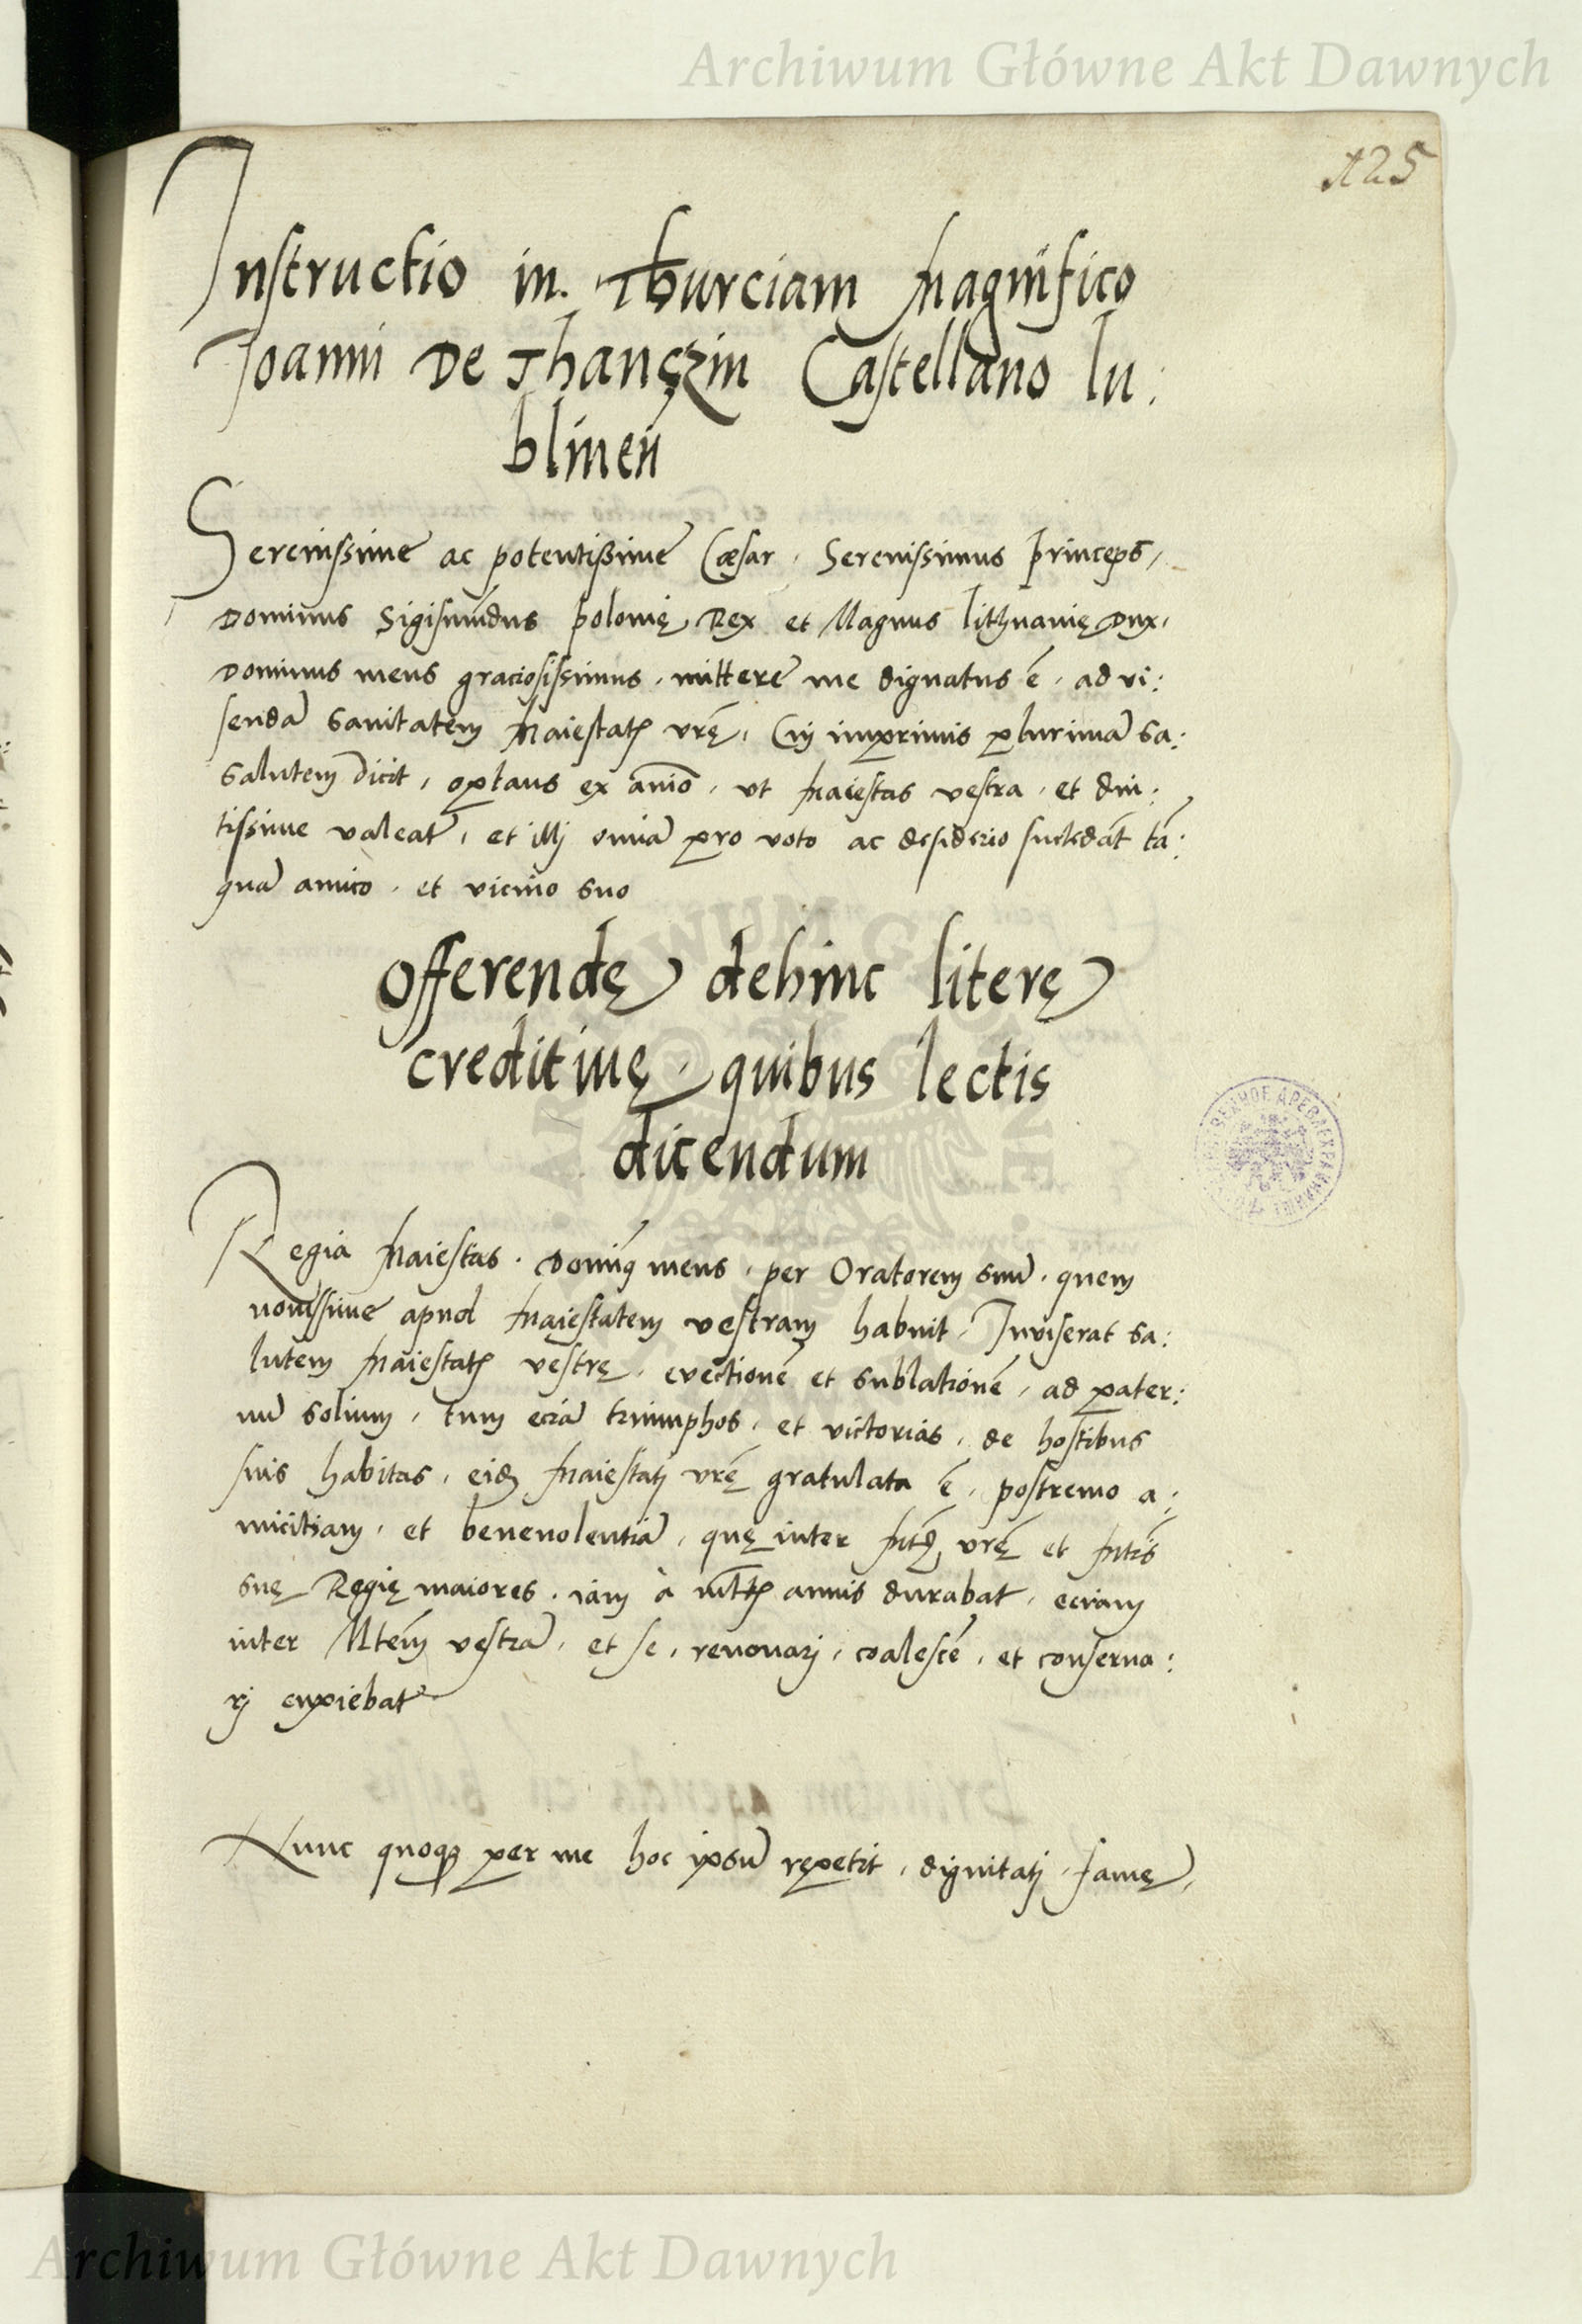 Archiwum Główne Akt Dawnych
125
Instructio in Thurciam Magnifico
Joanni De Thanczin Castellano lu:
blineñ
Serenissime ac potentissime Cæsar. Serenissimus princeps,
Dominus Sigismũdus polonię Rex et Magnus lithuanię Dux,
Dominus meus graciosissimus, mittere me dignatus ẽ, ad vi:
sendã sanitatem Maiestatꝭ vrę̃, Cuj imprimis plurimã sa:
salutem dicit, optans ex anĩo, ut Maiestas vestra, et diu:
tissime valeat, et illj omĩa pro voto ac desiderio succedãt tã:
quã amico, et vicino suo
Offerendę dehinc literę
creditiuę, quibus lectis
dicendum
Regia Maiestas. Domiñꝰ meus, per Oratorem suũ, quem
nouissime apud Maiestatem vestram habuit, Inviserat sa:
lutem Maiestatꝭ vestrę, evectionẽ et sublationẽ, ad pater:
nũ solium, tum eciã triumphos, et victorias, de hostibus
suis habitas, eidẽ Maiestatj vrę̃ gratulata ẽ, postremo a:
micitiam, et beneuolentiã, quę inter Mtẽ vrã et Mtis
suę Regię maiores, iam à mltꝭ annis durabat, eciam
inter Mtẽm vestrã, et se, renouarj, coalescẽ, et conserua:
rj cupiebat
Nunc quoqꝫ per me hoc ipsũ repetit, dignitatj, famę,
Archiwum Główne Akt Dawnych